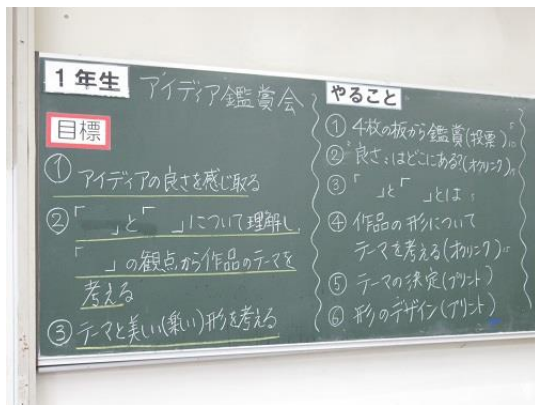 1年生 アイディア鑑賞会
目標
① アイディアの良さを感じ取る
② 「　」と「　」について理解し、
「　」の観点から作品のテーマを
考える
③ テーマと美しい(楽しい)形を考える
やること
① 4枚の板から鑑賞(投票)
② "良さ"はどこにある?(オクリンク)
③ 「　」と「　」とは
④ 作品の形について
テーマを考える(オクリンク)
⑤ テーマの決定(プリント)
⑥ 形のデザイン(プリント)